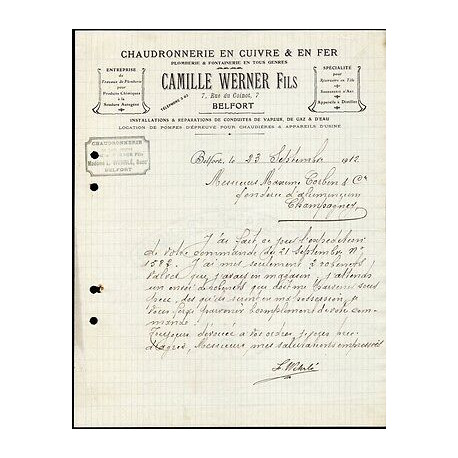 CHAUDRONNERIE EN CUIVRE & EN FER
PLOMBERIE & FONTAINERIE EN TOUS GENRES
ENTREPRISE
de
Travaux de Plomberie
pour
Produits Chimiques
à la
Soudure Autogène
TÉLÉPHONE
CAMILLE WERNER FILS
7, Rue du Coinot, 7
BELFORT
SPÉCIALITÉ
pour
Réservoirs en Tôle
Appareils à Distiller
INSTALLATIONS & RÉPARATIONS DE CONDUITES DE VAPEUR, DE GAZ & D'EAU
LOCATION DE POMPES D'ÉPREUVE POUR CHAUDIÈRES & APPAREILS D'USINE
CHAUDRONNERIE
WERNER FILS
Madame L. WEHRLÉ, Succ
BELFORT
Belfort, le 23 Septembre 1912
Messieurs Maxime Corbin & Cie
fonderie d'aluminium
Champagney
J'ai fait ce jour l'expédition
de votre commande du 21 Septembre No
J'ai mis seulement 3 robinets
que j'avais en magasin, j'attends
un envoi de robinets que doit me parvenir sous
peu, dès qu'ils seront en ma possession, je
vous ferai parvenir le complément de votre com
mande.
Toujours dévouée à vos ordres,
Messieurs, mes salutations empressées
L. Wehrlé